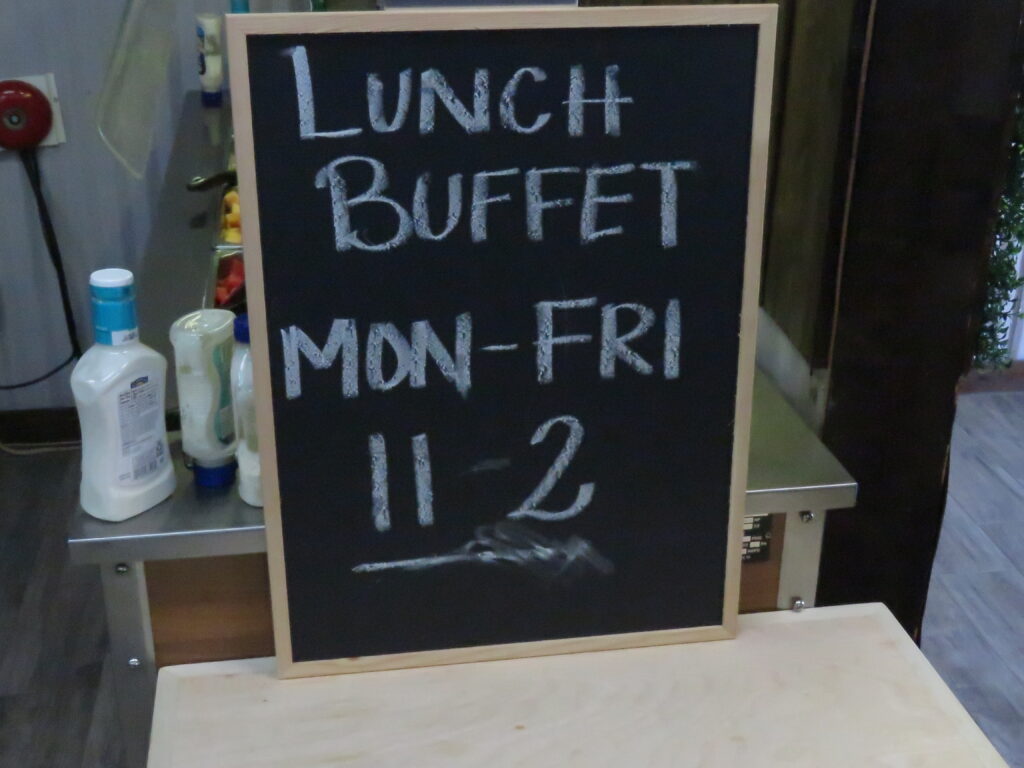 LUNCH
BUFFET
MON-FRI
11-2